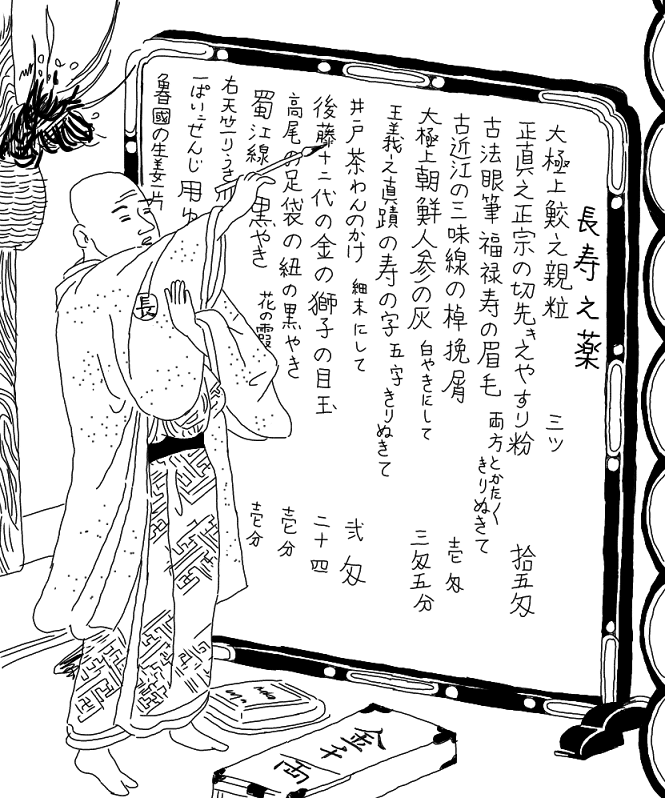 長寿之薬
大極上鮫之親粒 三ツ
正真之正宗の切先きえやすり粉 拾五匁
古法眼筆 福禄寿の眉毛 両方とかたく きりぬきて
古近江の三味線の棹挽屑 壱匁
大極上朝鮮人参の灰 白やきにして 三匁五分
王義之真蹟の寿の字 五字きりぬきて
井戸茶わんのかけ 細末にして 弐匁
後藤十二代の金の獅子の目玉 二十四
高尾の足袋の紐の黒やき 壱分
蜀江線 黒やき 花の霞 壱分
右天竺りうき
一ぱいニせんじ 用ゆ
魯國の生姜一片
長
金千両